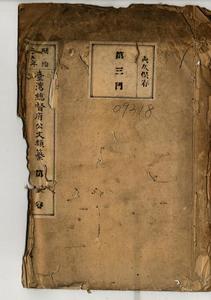 明治
臺灣總督府公文類纂
第
卷
永久保存
第三門
09318